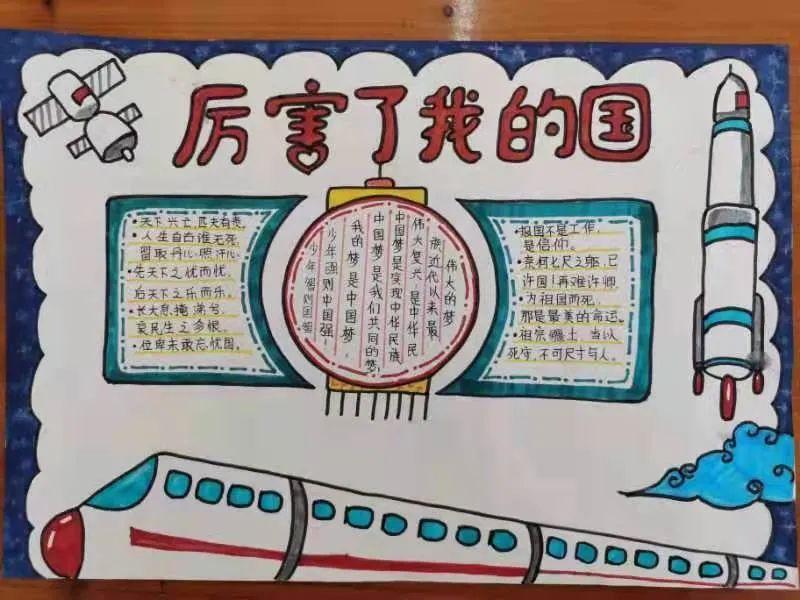 厉害了我的国
·天下兴亡,匹夫有责。
·人生自古谁无死,
留取丹心照汗心。
·先天下之忧而忧,
后天下之乐而乐。
·长大息,掩涕兮,
哀民生之多艰。
·位卑未敢忘忧国。
少年智则国智
少年强则中国强!
我的梦是中国梦,
中国梦是我们共同的梦,
中国梦是实现中华民族
伟大复兴,是中华民
族近代以来最
伟大的梦
·报国不是工作,
是信仰。
·奈何七尺之躯,已
许国!再难许卿
·为祖国而死,
那是最美的命运。
·祖宗疆土,当以
死守,不可尺寸与人。